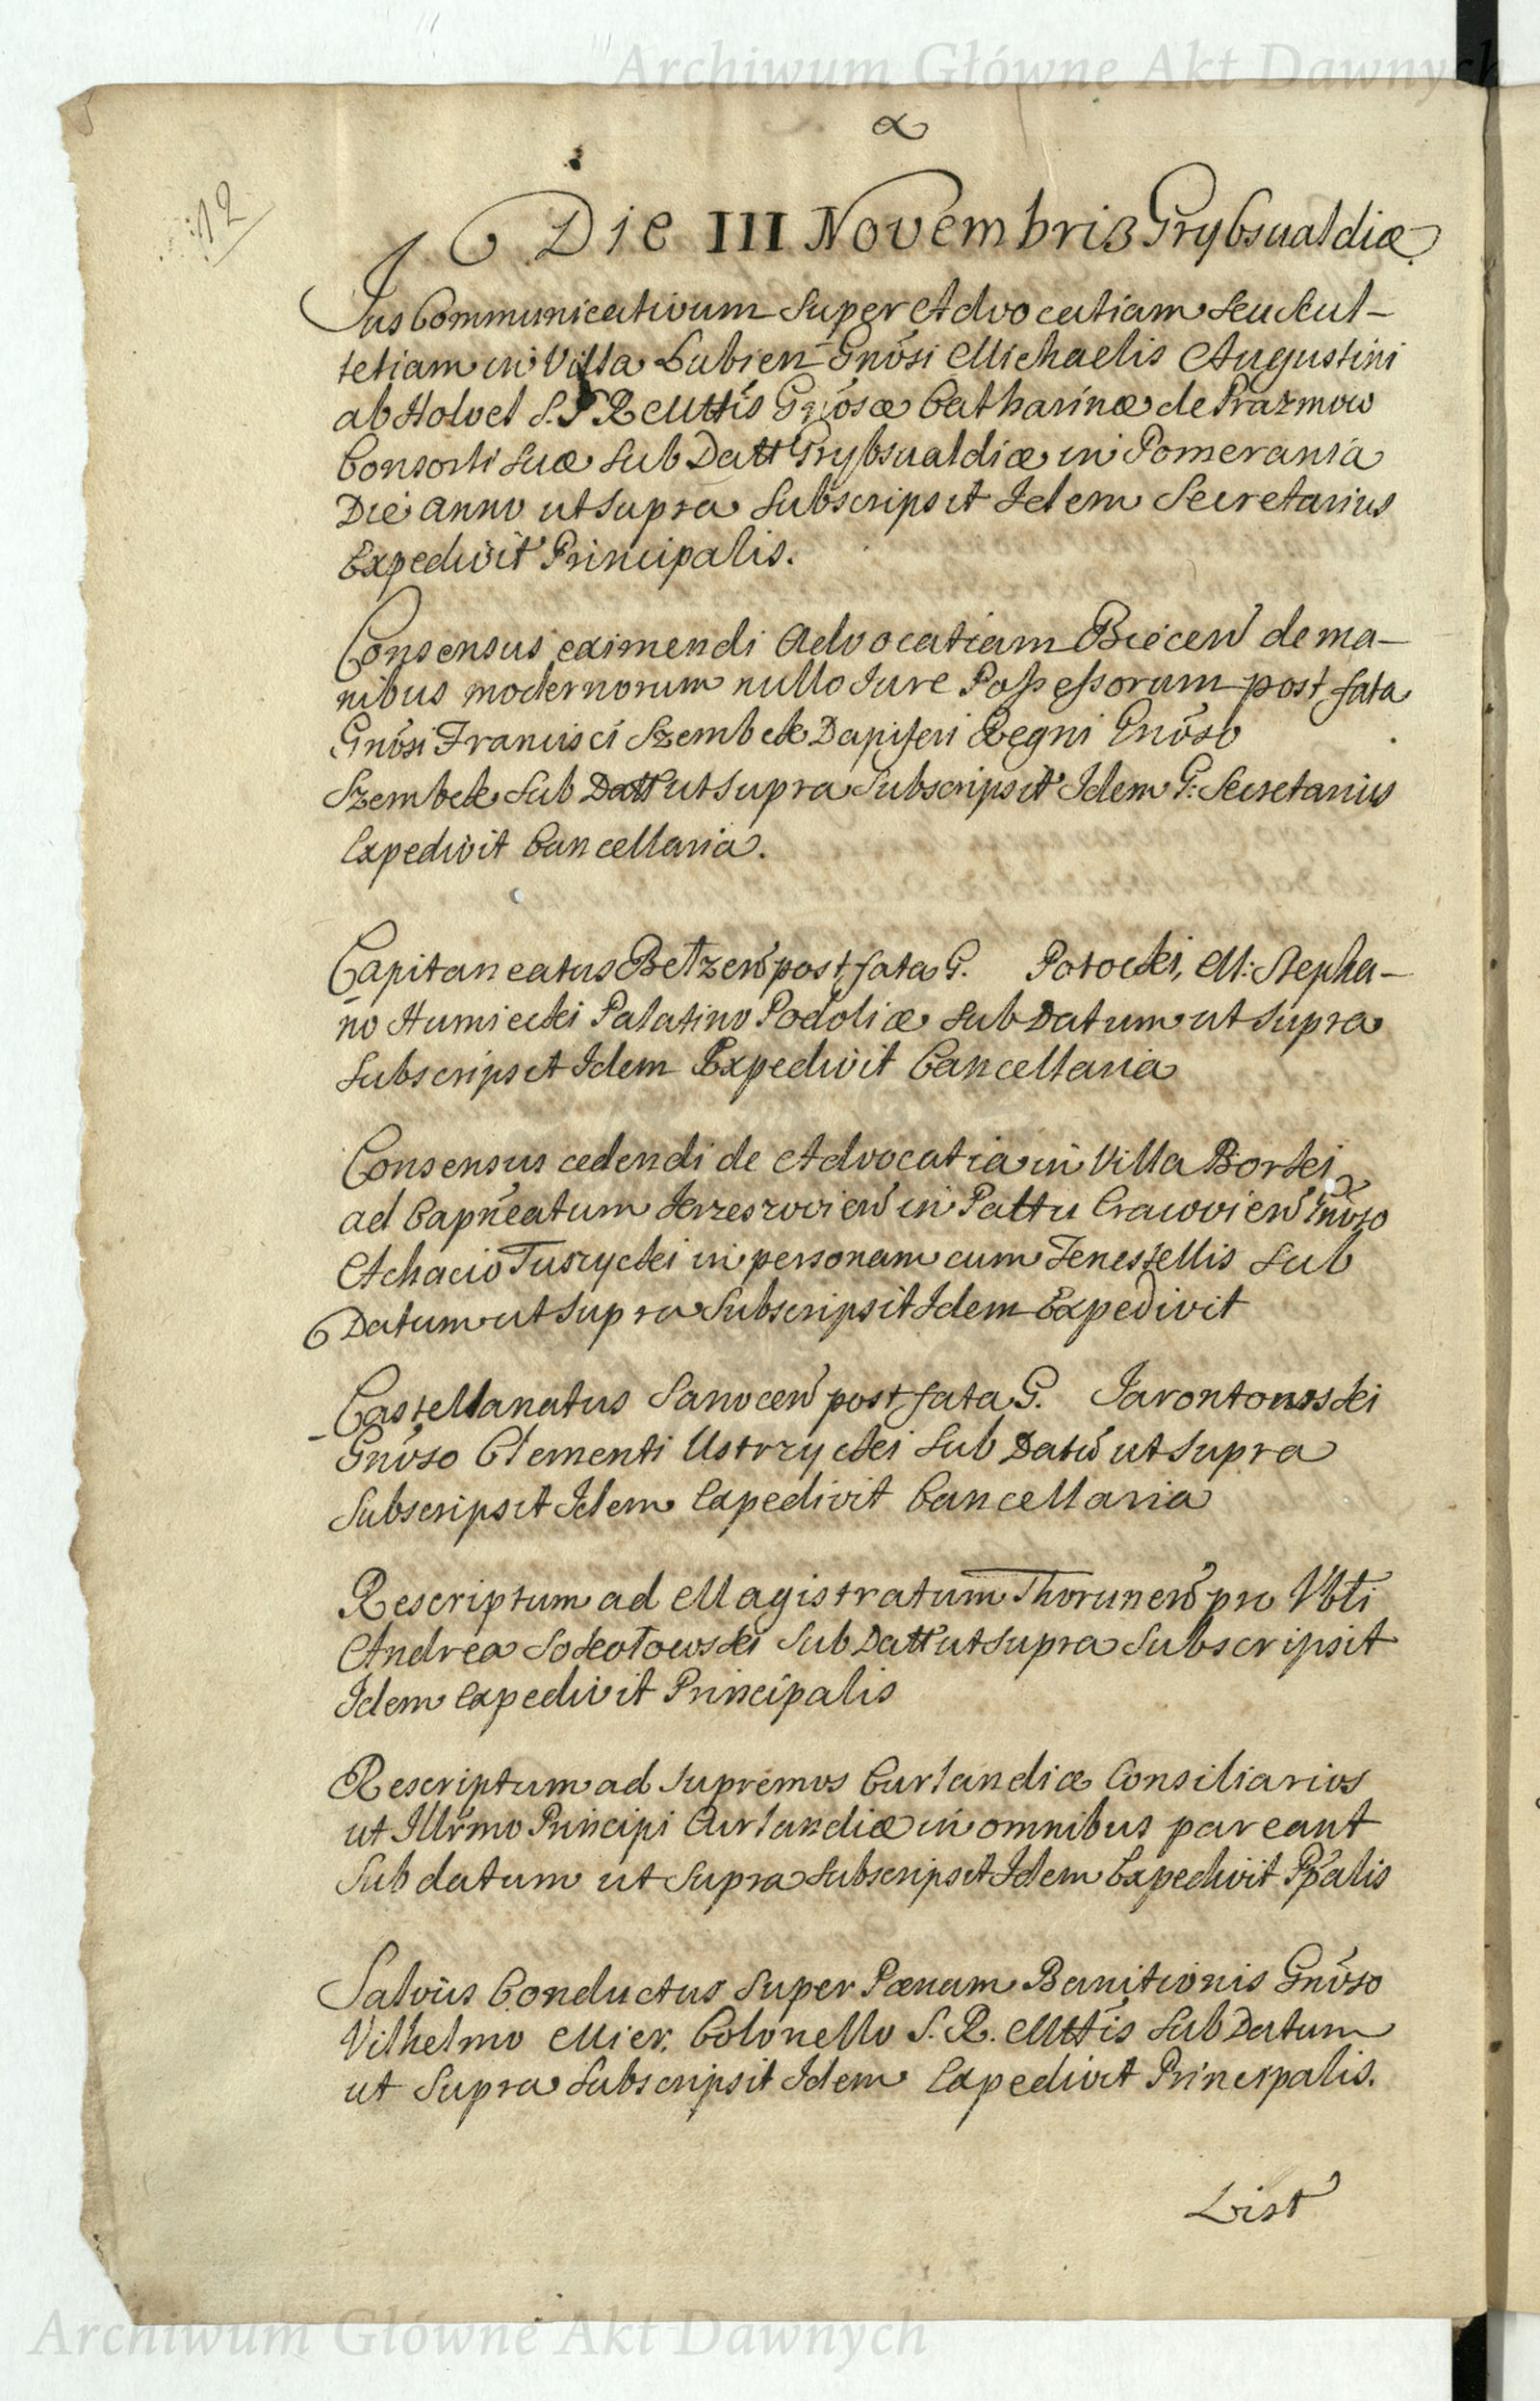 Archiwum Główne Akt Dawnych
12
Die III Novembris Grybsualdiæ
Jus Communicativum Super Advocatiam Seu Scul-
tetiam in Villa Lubień Gnősi Michaelis Augustini
ab Holvel S. R Mttis Gnősæ Catharinæ de Prazmow
Consorti Suæ Sub Datt Grybsualdiæ in Pomerania
Die anno ut Supra Subscripsit Idem Secretarius
Expedivit Principalis.
Consensus eximendi Advocatiam Biecen de ma-
nibus modernorum nullo Jure Possessorum post fata
Gnősi Francisci Szembek Dapiferi Regni Gnőso
Szembek Sub Datt ut Supra Subscripsit Idem G: Secretarius
Expedivit Cancellaria.
Capitaneatus Bełzen post fata G. Potocki, M: Stepha-
no Humiecki Palatino Podoliæ Sub Datum ut Supra
Subscripsit Idem Expedivit Cancellaria
Consensus cedendi de Advocatia in Villa Borki
ad Capneatum Krzeszovien in Pattu Cracovien Gnőso
Achacio Tuszycki in personam cum Fenestellis Sub
Datum ut Supra Subscripsit Idem Expedivit
Castellanatus Sanocen post fata G. Jarontowski
Gnőso Clementi Ustrzycki Sub Datű ut Supra
Subscripsit Idem Expedivit Cancellaria
Rescriptum ad Magistratum Thorunen pro Vbti
Andrea Sokołowski Sub Datt ut Supra Subscripsit
Idem Expedivit Principalis
Rescriptum ad Supremos Curlandiæ Consiliarios
ut Illrmo Principi Curlandiæ in omnibus pareant
Sub datum ut Supra Subscripsit Idem Expedivit Ppalis
Salvus Conductus Super Pænam Banitionis Gnőso
Vilhelmo Mier, Colonello S. R. Mttis Sub Datum
ut Supra Subscripsit Idem Expedivit Principalis.
List
Archiwum Główne Akt Dawnych